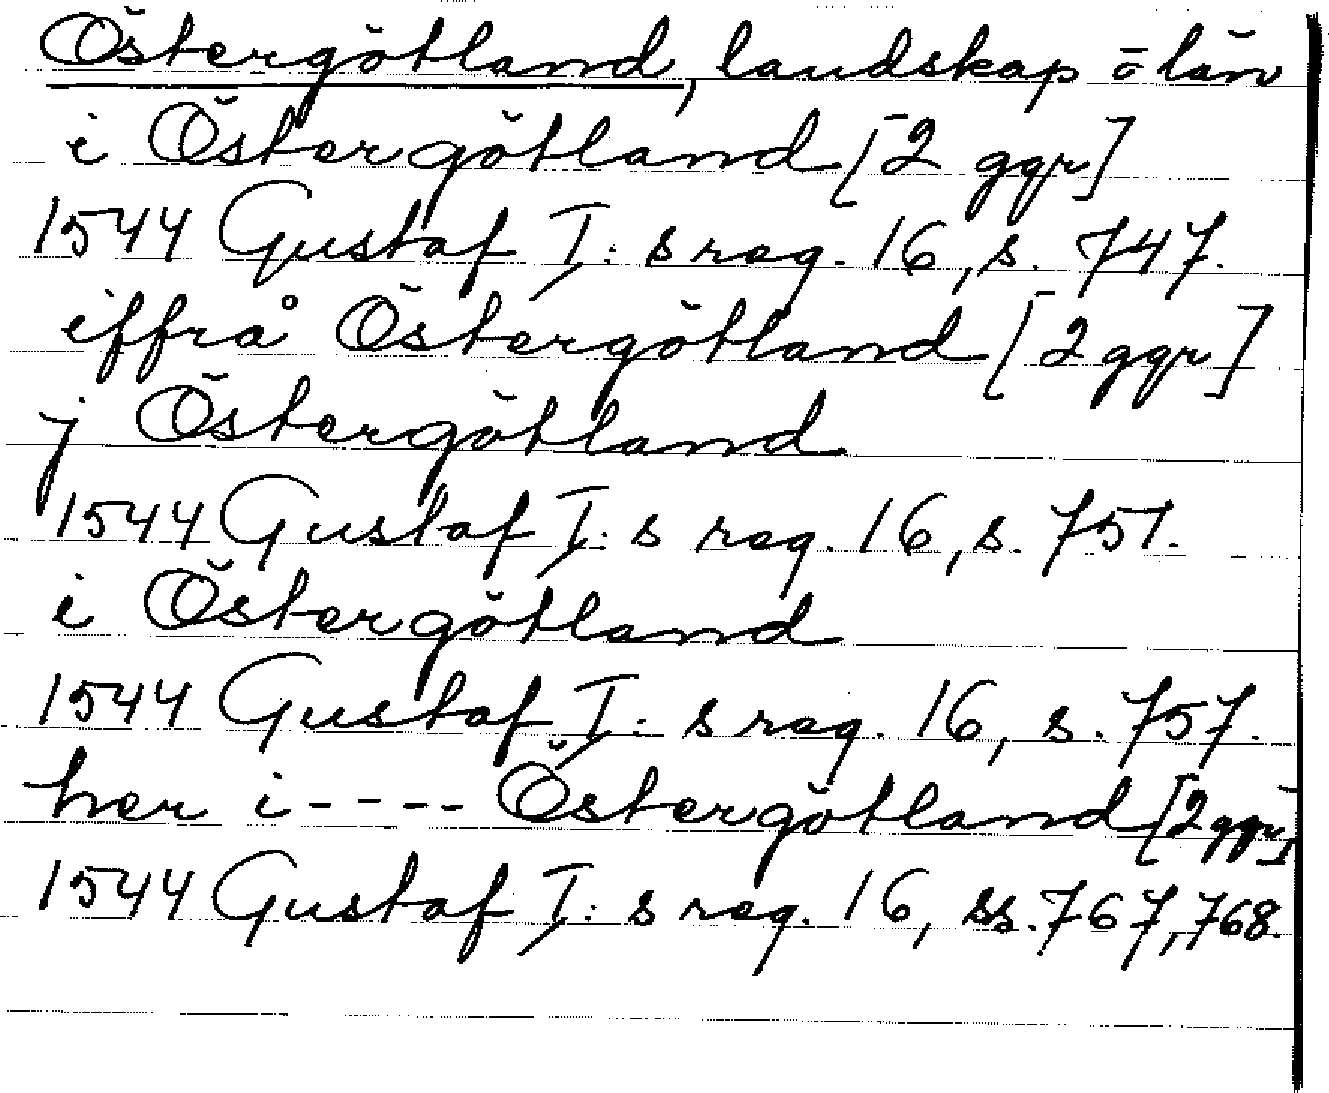 Östergötland, landskap o län
i Östergötland [2 ggr]
1544 Gustaf I:s reg. 16, s. 747.
iffrå Östergötland [2 ggr]
j Östergötland
1544 Gustaf I:s reg. 16, s. 751.
i Östergötland
1544 Gustaf I:s reg. 16, s. 757.
her i---- Östergötland [2 ggr]
1544 Gustaf I:s reg. 16, ss. 767, 768.